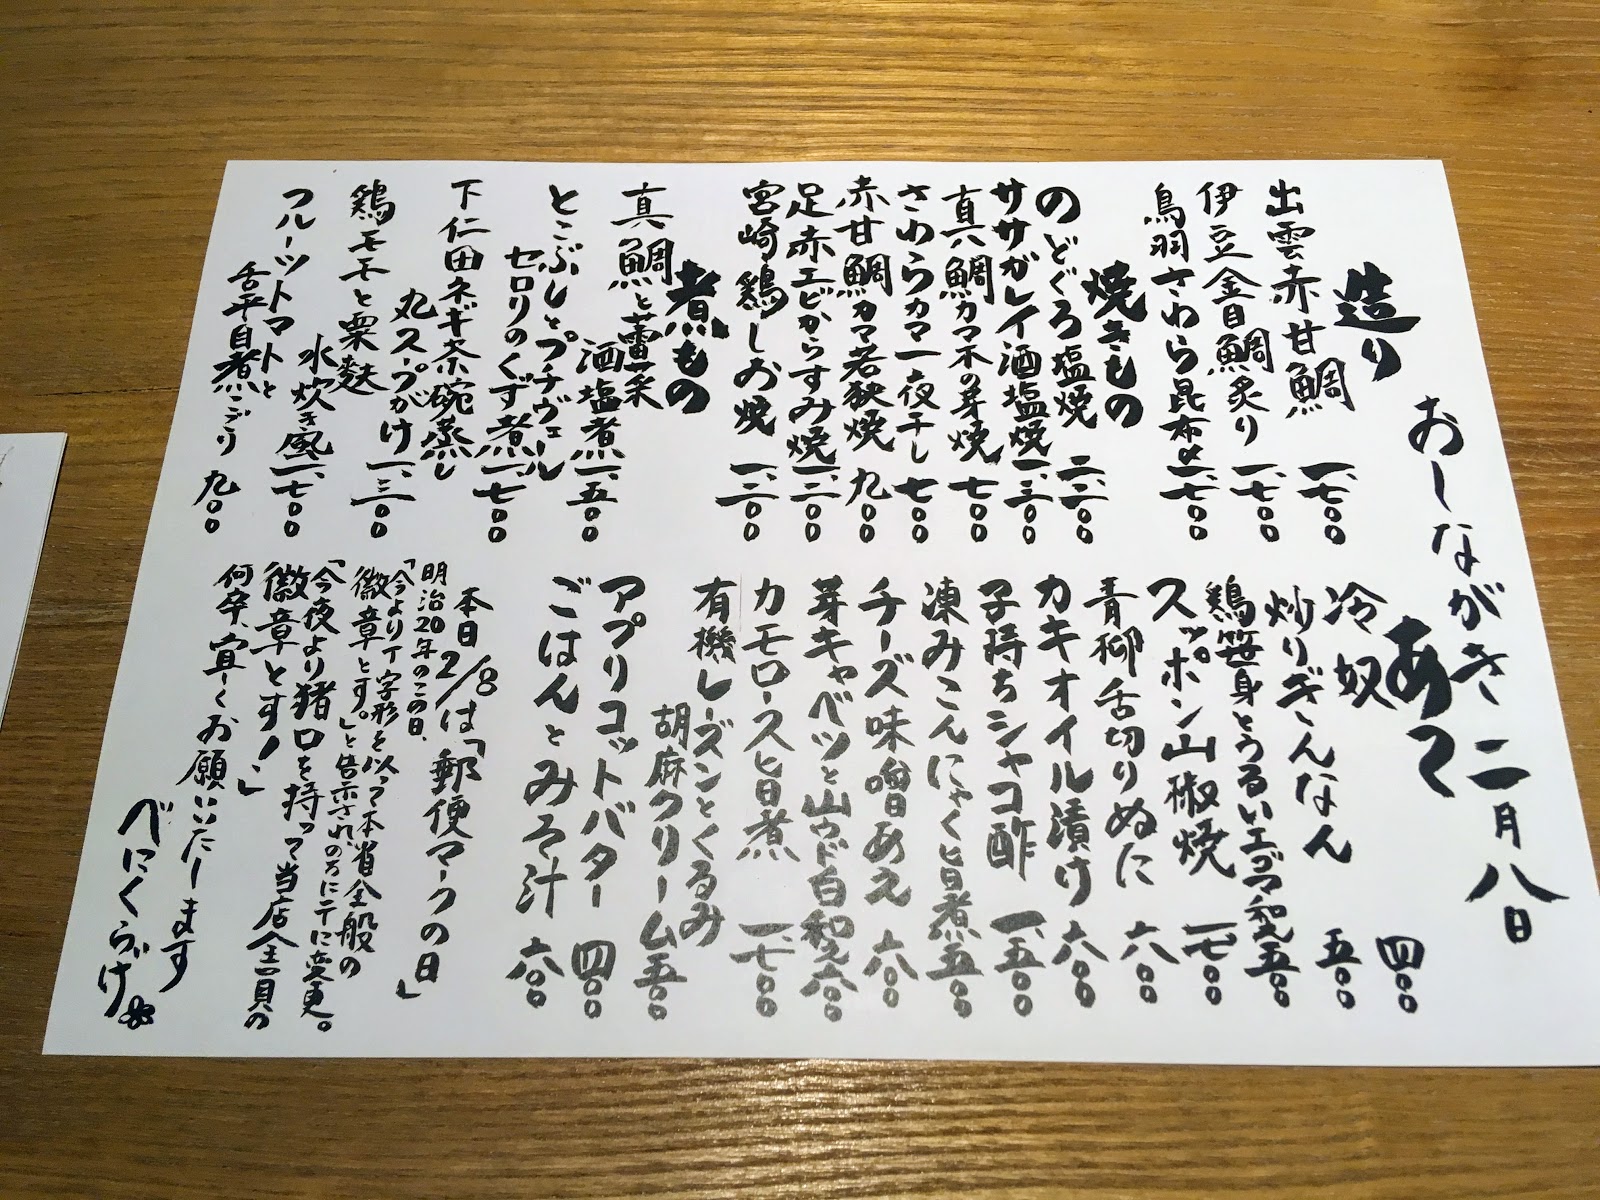 おしながき 二月八日
造り
出雲赤甘鯛 一、七〇〇
伊豆金目鯛炙り 一、七〇〇
鳥羽さわら昆布〆 一、七〇〇
焼きもの
のどぐろ塩焼 二、二〇〇
ササガレイ酒塩焼 一、三〇〇
真鯛カマ木の芽焼 七〇〇
さわらカマ一夜干し 七〇〇
赤甘鯛カマ若狭焼 九〇〇
足赤エビからすみ焼 一、二〇〇
宮崎鶏しお焼 一、二〇〇
煮もの
真鯛と蕾菜
酒塩煮 一、五〇〇
とこぶしとプチヴェール
セロリのくず煮 一、七〇〇
下仁田ネギ茶碗蒸し
丸スープがけ 一、三〇〇
鶏モモと粟麩
水炊き風 一、七〇〇
フルーツトマトと
舌平目煮こごり 九〇〇
あて
冷奴 四〇〇
炒りぎんなん 五〇〇
鶏笹身とうるいエゴマ和え 五〇〇
スッポン山椒焼 一、七〇〇
青柳舌切りぬた 六〇〇
カキオイル漬け 六〇〇
子持ちシャコ酢 一、五〇〇
凍みこんにゃく旨煮 五〇〇
チーズ味噌あえ 六〇〇
芽キャベツと山ウド白和え 六〇〇
カモロース旨煮 一、七〇〇
有機レーズンとくるみ
胡麻クリーム 五〇〇
アプリコットバター 四〇〇
ごはんとみそ汁 六〇〇
本日2/8は「郵便マークの日」
明治20年のこの日、
「今より丁字形を以って本省全般の
徽章とす。」と告示されのちに〒に変更。
「今夜より猪口を持って当店全員の
徽章とす!」
何卒、宜しくお願いいたします
べにくらげ